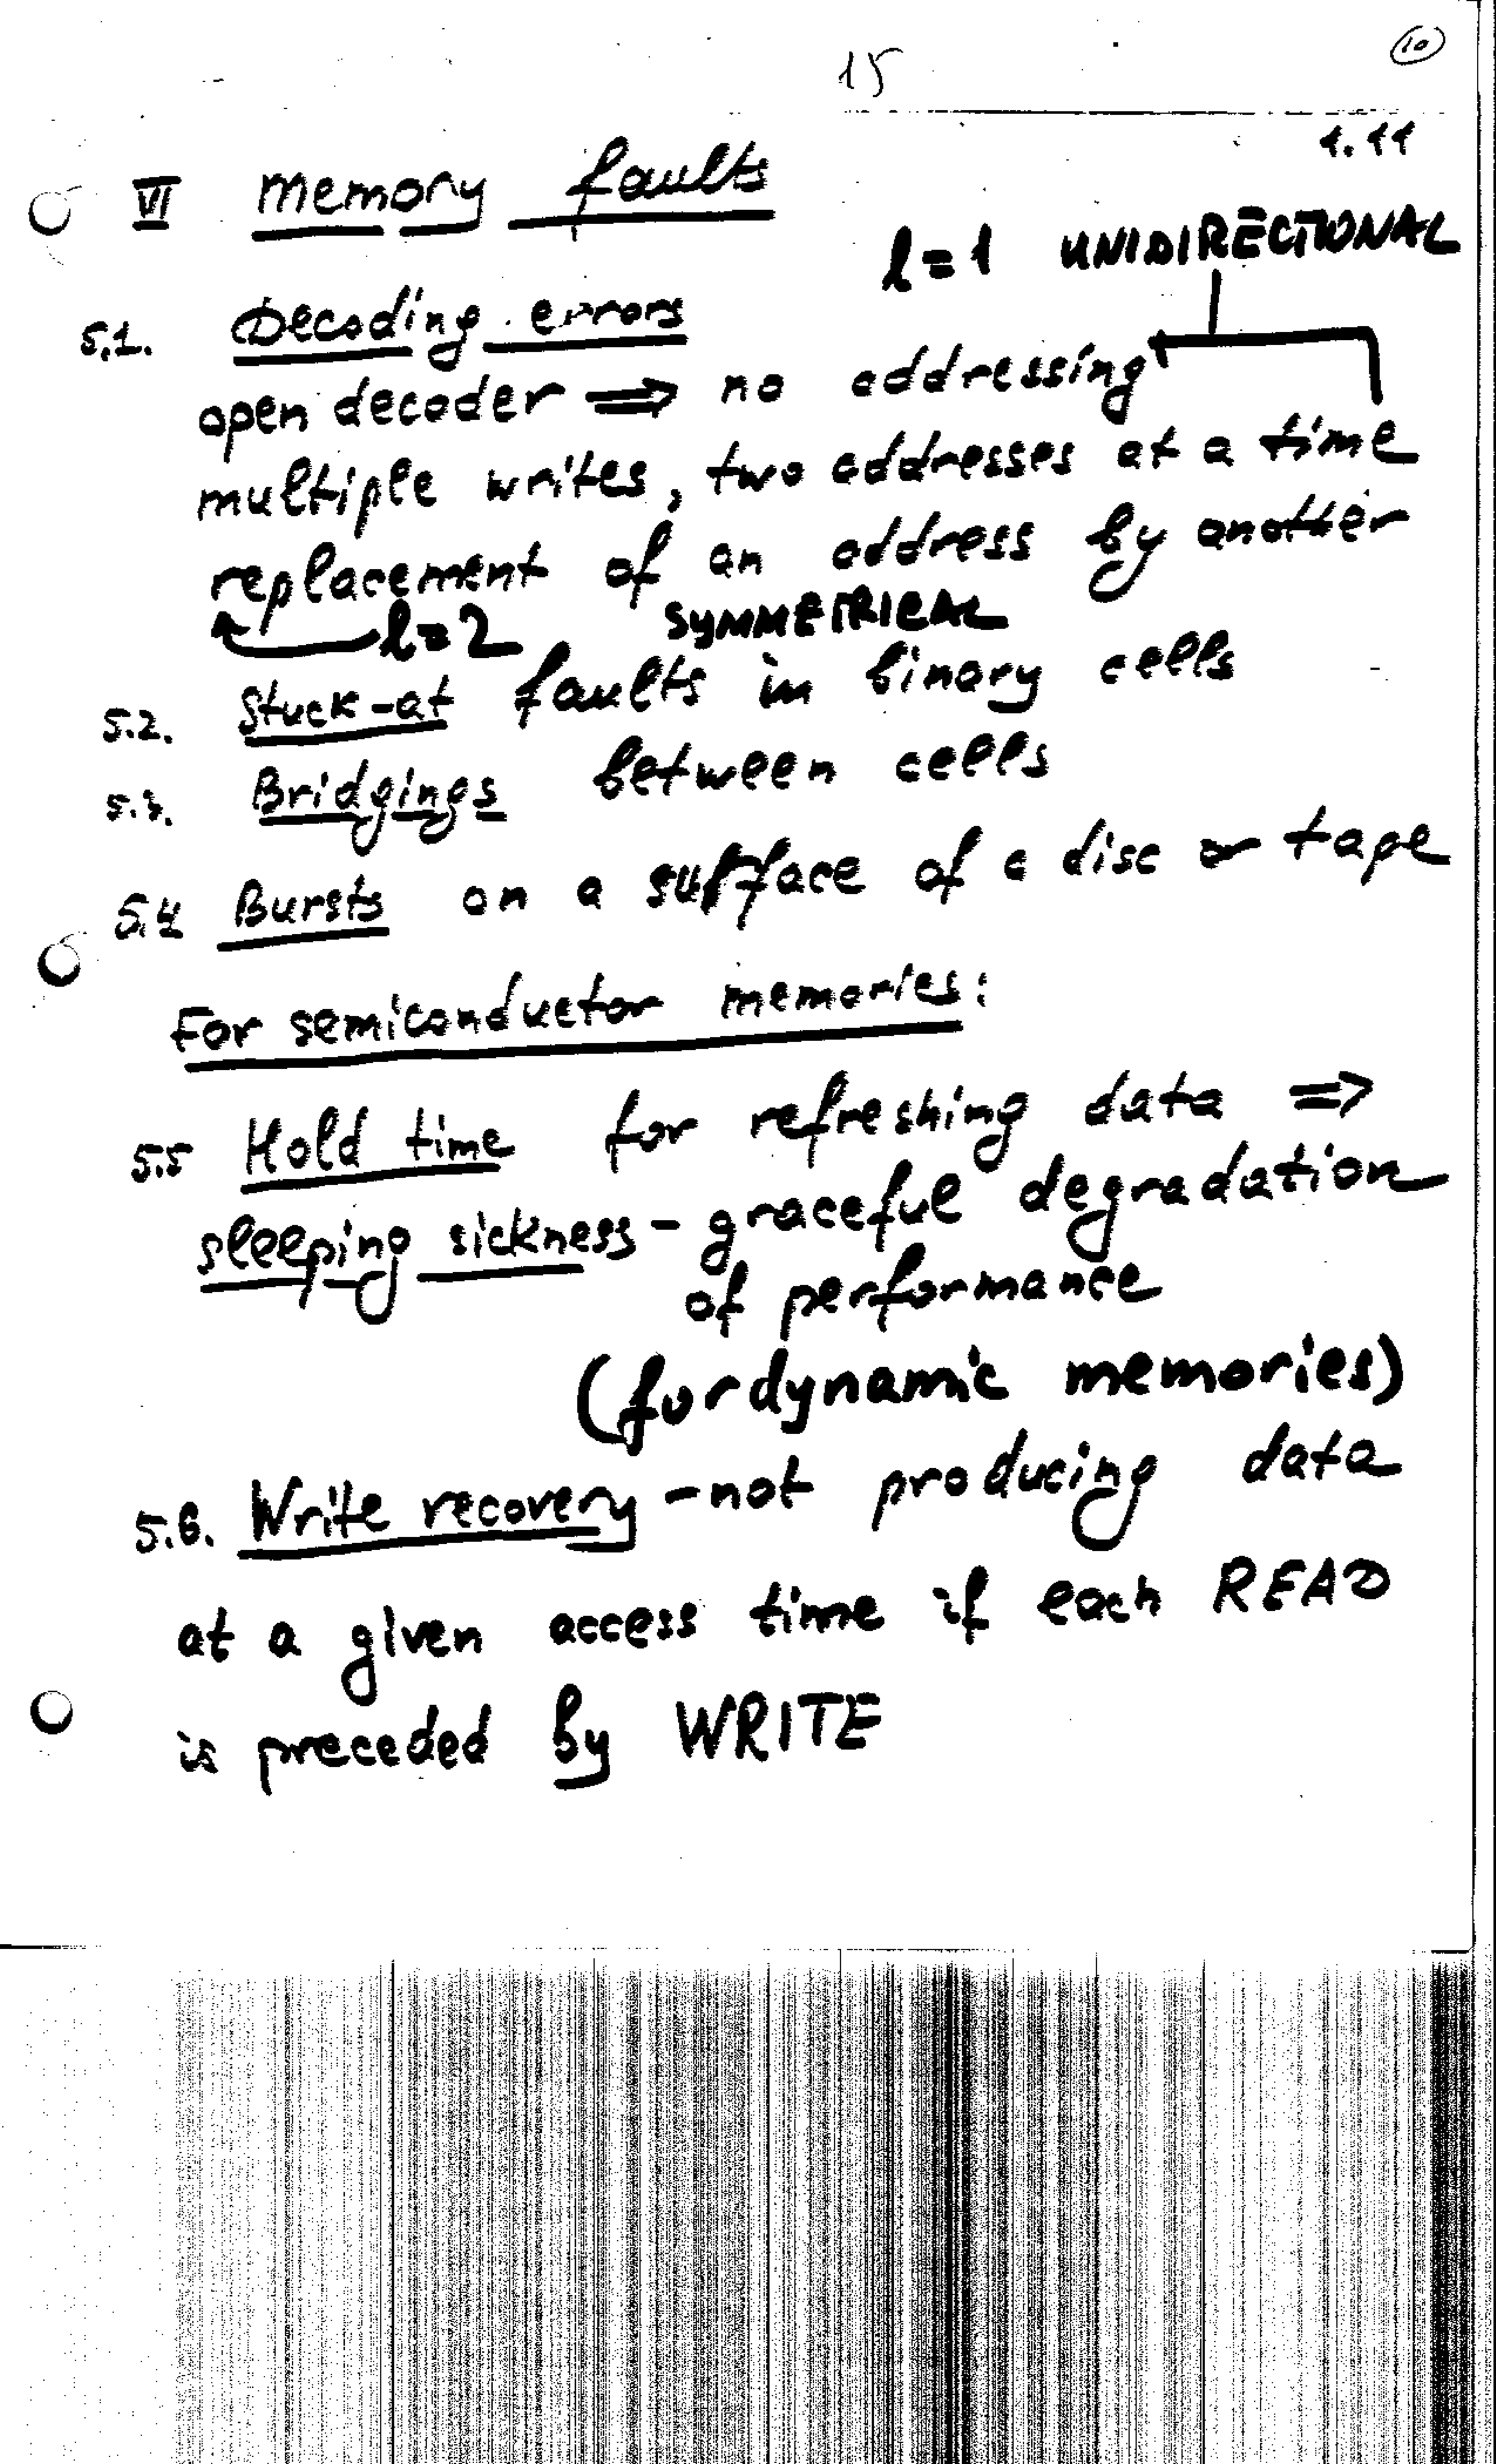 15
10
1.11
VI Memory faults
l=1 UNIDIRECTIONAL
5.1. Decoding errors
open decoder ⇒ no addressing
multiple writes, two addresses at a time
replacement of an address by another
l=2 SYMMETRICAL
5.2. Stuck-at faults in binary cells
5.3. Bridgings between cells
5.4 Bursts on a surface of a disc or tape
For semiconductor memories:
5.5 Hold time for refreshing data ⇒
sleeping sickness - graceful degradation
of performance
(for dynamic memories)
5.6. Write recovery - not producing data
at a given access time if each READ
is preceded by WRITE